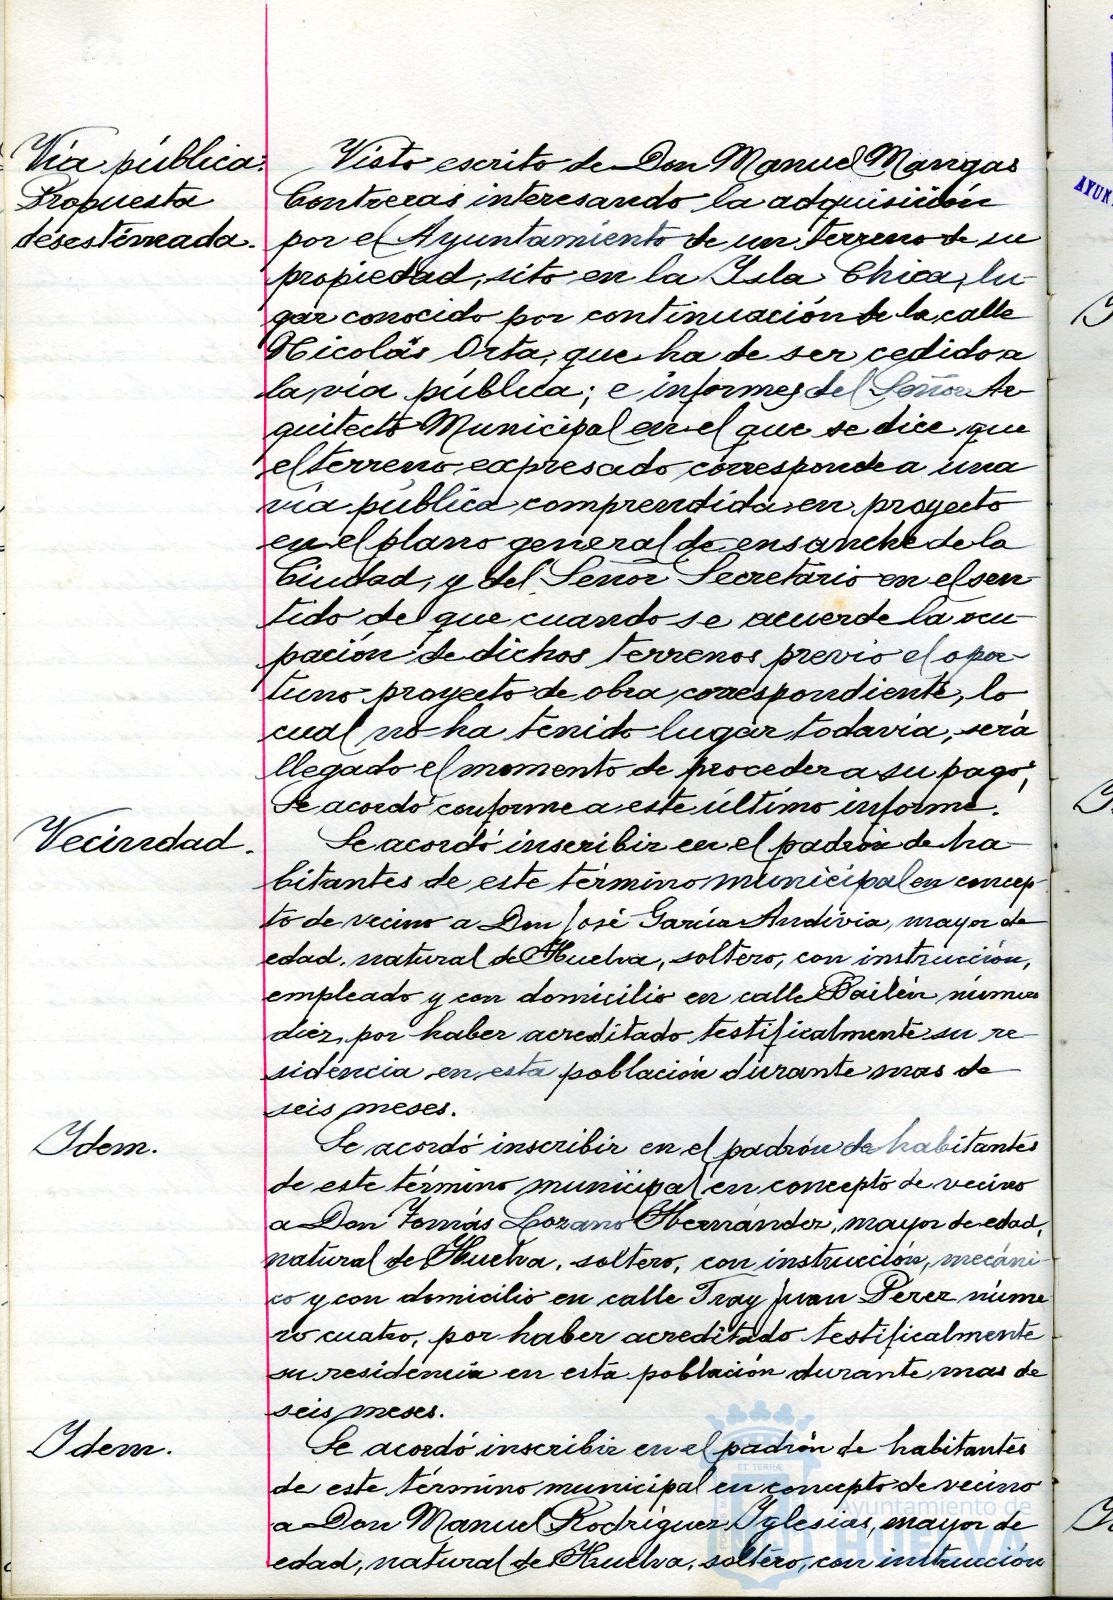 Vía pública.
Propuesta
desestimada.
Visto escrito de Don Manuel Mangas
Contreras interesando la adquisición
por el Ayuntamiento de un terreno de su
propiedad, sito en la Isla Chica, lu-
gar conocido por continuación de la calle
Nicolás Orta, que ha de ser cedido a
la vía pública; e informes del Señor Ar-
quitecto Municipal en el que se dice que
el terreno expresado corresponde a una
vía pública comprendida en proyecto
en el plano general de ensanche de la
Ciudad, y del Señor Secretario en el sen-
tido de que cuando se acuerde la ocu-
pación de dichos terrenos previo el opor-
tuno proyecto de obra correspondiente, lo
cual no ha tenido lugar todavía, será
llegado el momento de proceder a su pago;
Se acordó conforme a este último informe.
Vecindad.
Se acordó inscribir en el padrón de ha-
bitantes de este término municipal en concep-
to de vecino a Don José García Andivia, mayor de
edad, natural de Huelva, soltero, con instrucción,
empleado y con domicilio en calle Bailén número
diez, por haber acreditado testificalmente su re-
sidencia en esta población durante mas de
seis meses.
Idem.
Se acordó inscribir en el padrón de habitantes
de este término municipal en concepto de vecino
a Don Tomás Lozano Hernández, mayor de edad,
natural de Huelva, soltero, con instrucción, mecáni-
co y con domicilio en calle Fray Juan Pérez núme-
ro cuatro, por haber acreditado testificalmente
su residencia en esta población durante mas de
seis meses.
Idem.
Se acordó inscribir en el padrón de habitantes
de este término municipal en concepto de vecino
a Don Manuel Rodríguez Iglesias, mayor de
edad, natural de Huelva, soltero, con instrucción
Ayuntamiento de
HUELVA
AYUN